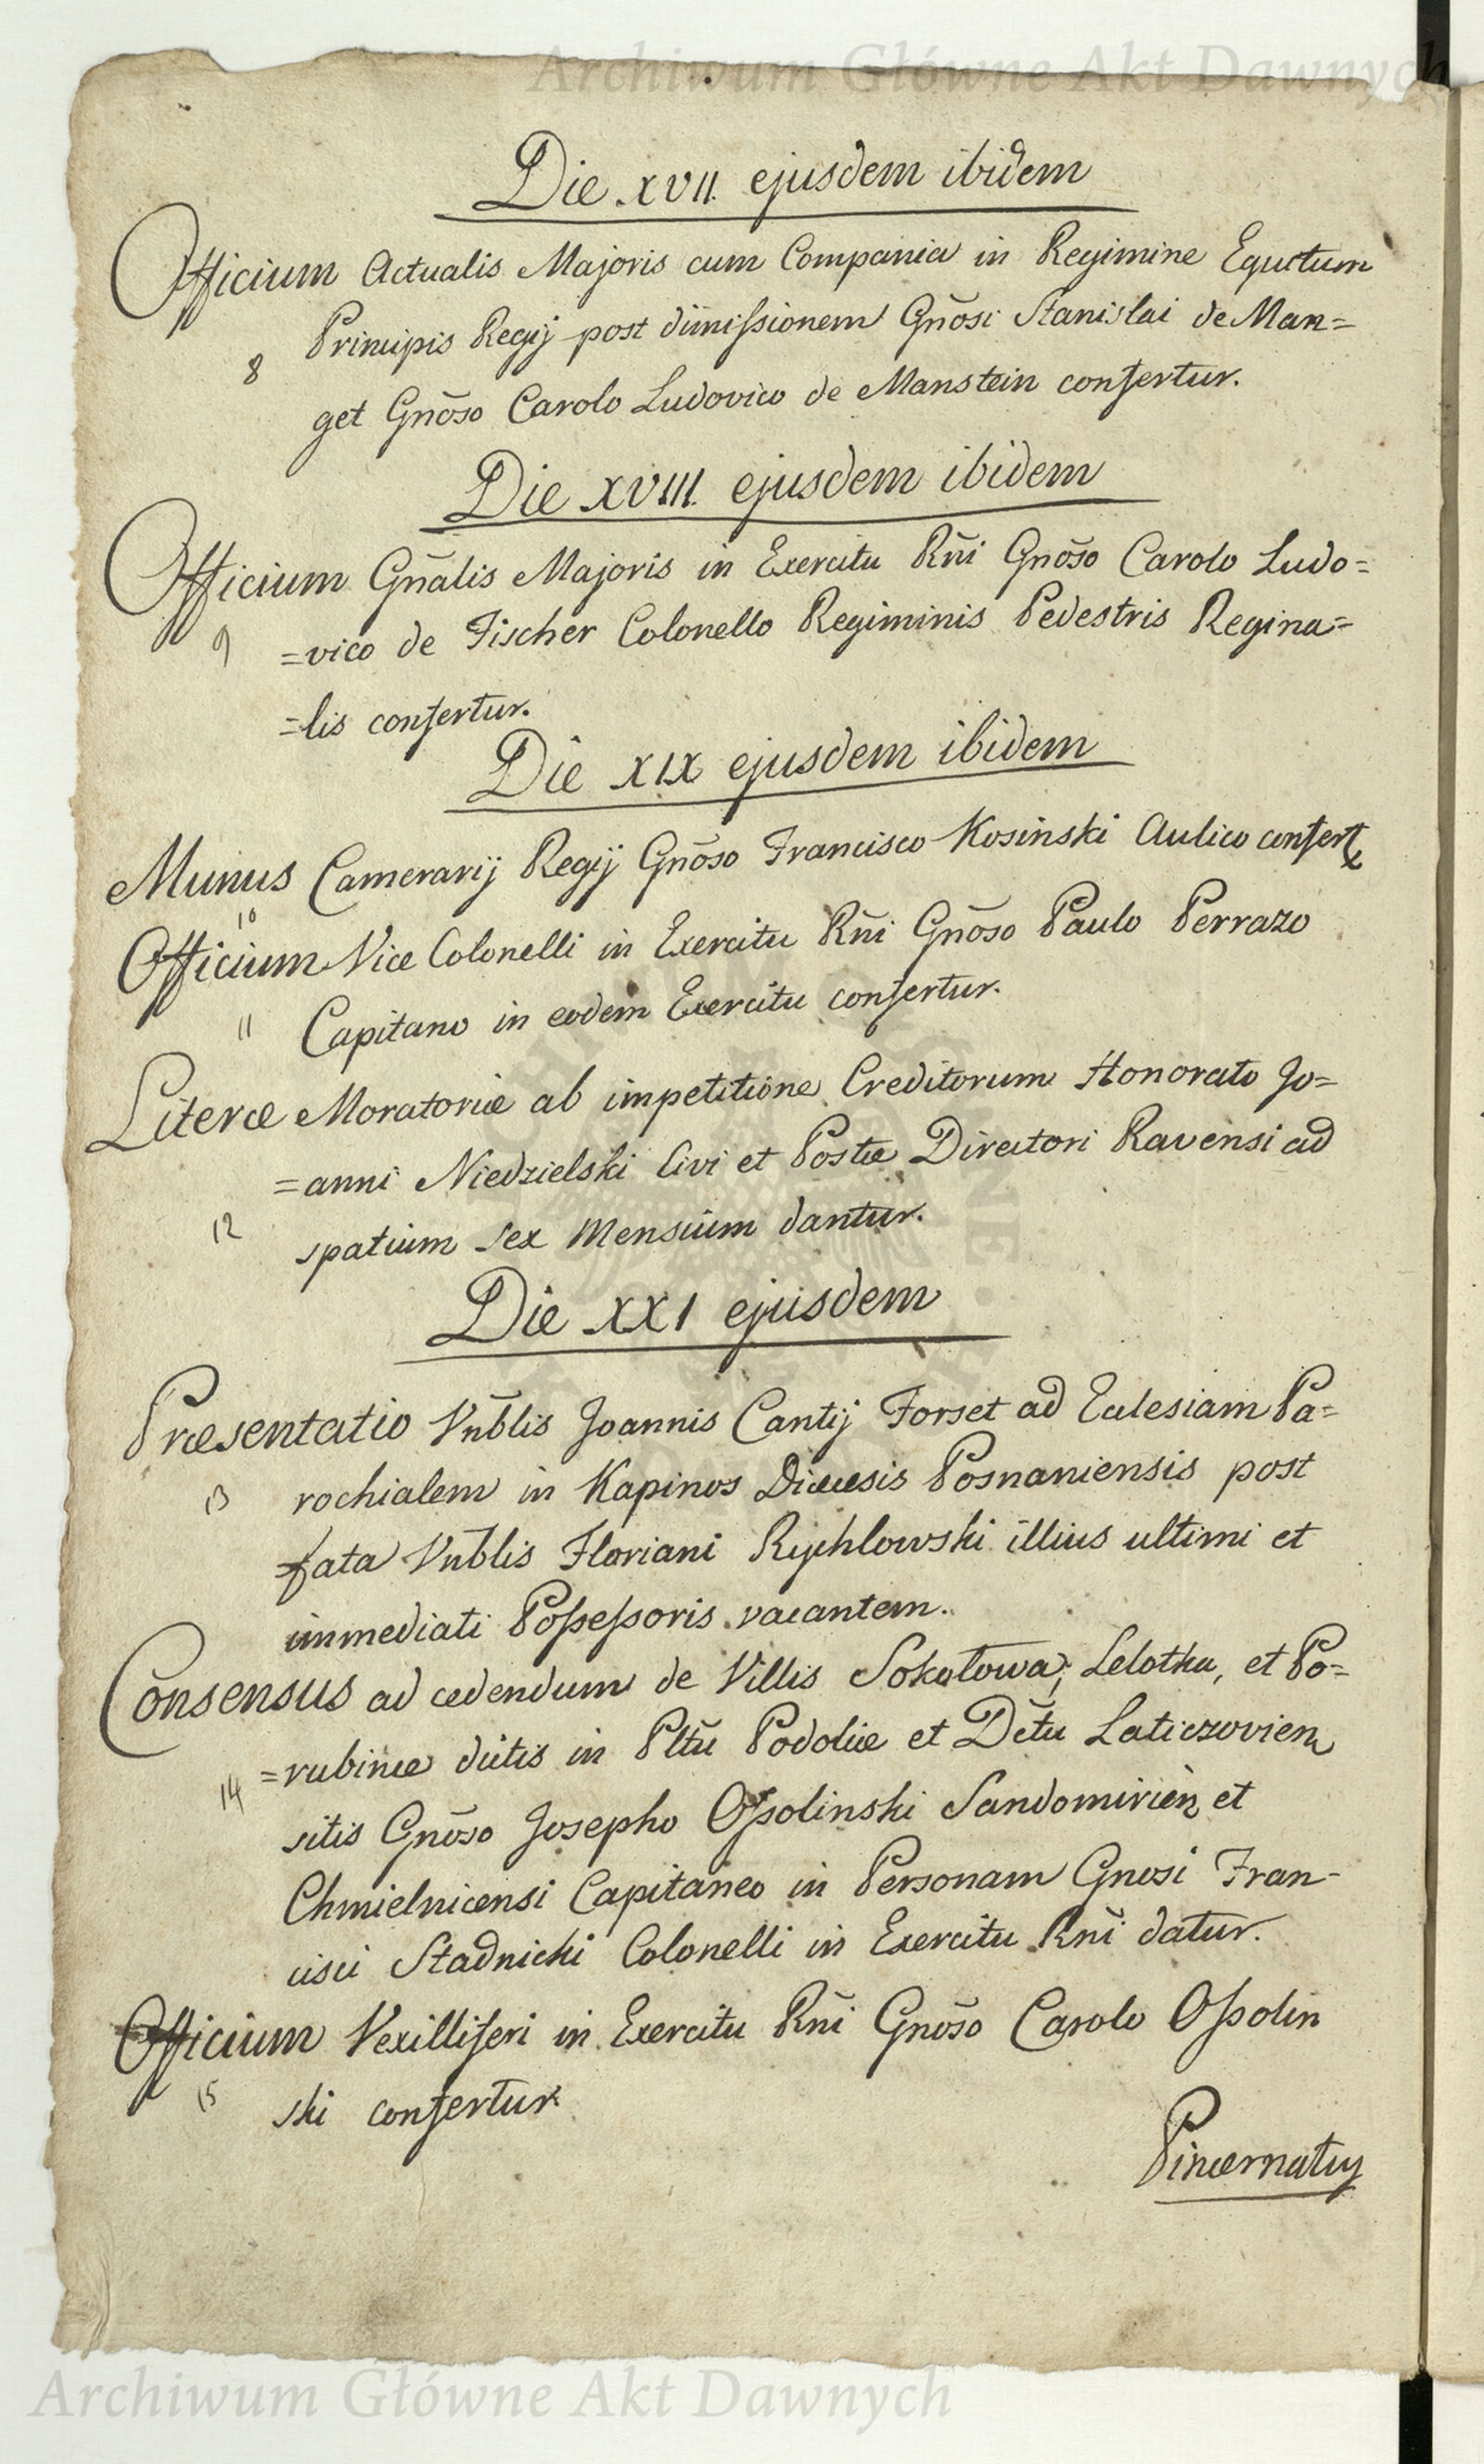 Archiwum Główne Akt Dawnych
Die XVII ejusdem ibidem
Officium Actualis Majoris cum Compania in Regimine Equitum
8 Principis Regij post dimissionem Gnōsi Stanislai de Man=
get Gnōso Carolo Ludovico de Manstein confertur.
Die XVIII ejusdem ibidem
Officium Gnālis Majoris in Exercitu Rni Gnōso Carolo Ludo=
9 =vico de Fischer Colonello Regiminis Pedestris Regina=
=lis confertur.
Die XIX ejusdem ibidem
Munus Camerarij Regij Gnōso Francisco Kosinski Aulico confert
10
Officium Vice Colonelli in Exercitu Rni Gnōso Paulo Perrazo
11 Capitano in eodem Exercitu confertur.
Literæ Moratoriæ ab impetitione Creditorum Honorato Jo=
=anni Niedzielski Civi et Postæ Directori Ravensi ad
12 spatium sex Mensium dantur.
Die XXI ejusdem
Præsentatio Vnblis Joannis Cantij Forset ad Eclesiam Pa=
13 rochialem in Kapinos Diœcesis Posnaniensis post
fata Vnblis Floriani Rychlowski illius ultimi et
immediati Possessoris vacantem.
Consensus ad cedendum de Villis Sokolowa, Lelotka, et Po=
14 =rubince dictis in Pltu Podoliæ et Dctu Laticzovien
sitis Gnōso Josepho Ossolinski Sandomirien et
Chmielnicensi Capitaneo in Personam Gnosi Fran-
cisci Stadnicki Colonelli in Exercitu Rni datur.
Officium Vexilliferi in Exercitu Rni Gnōso Carolo Ossolin
15 ski confertur
Pincernatus
Archiwum Główne Akt Dawnych